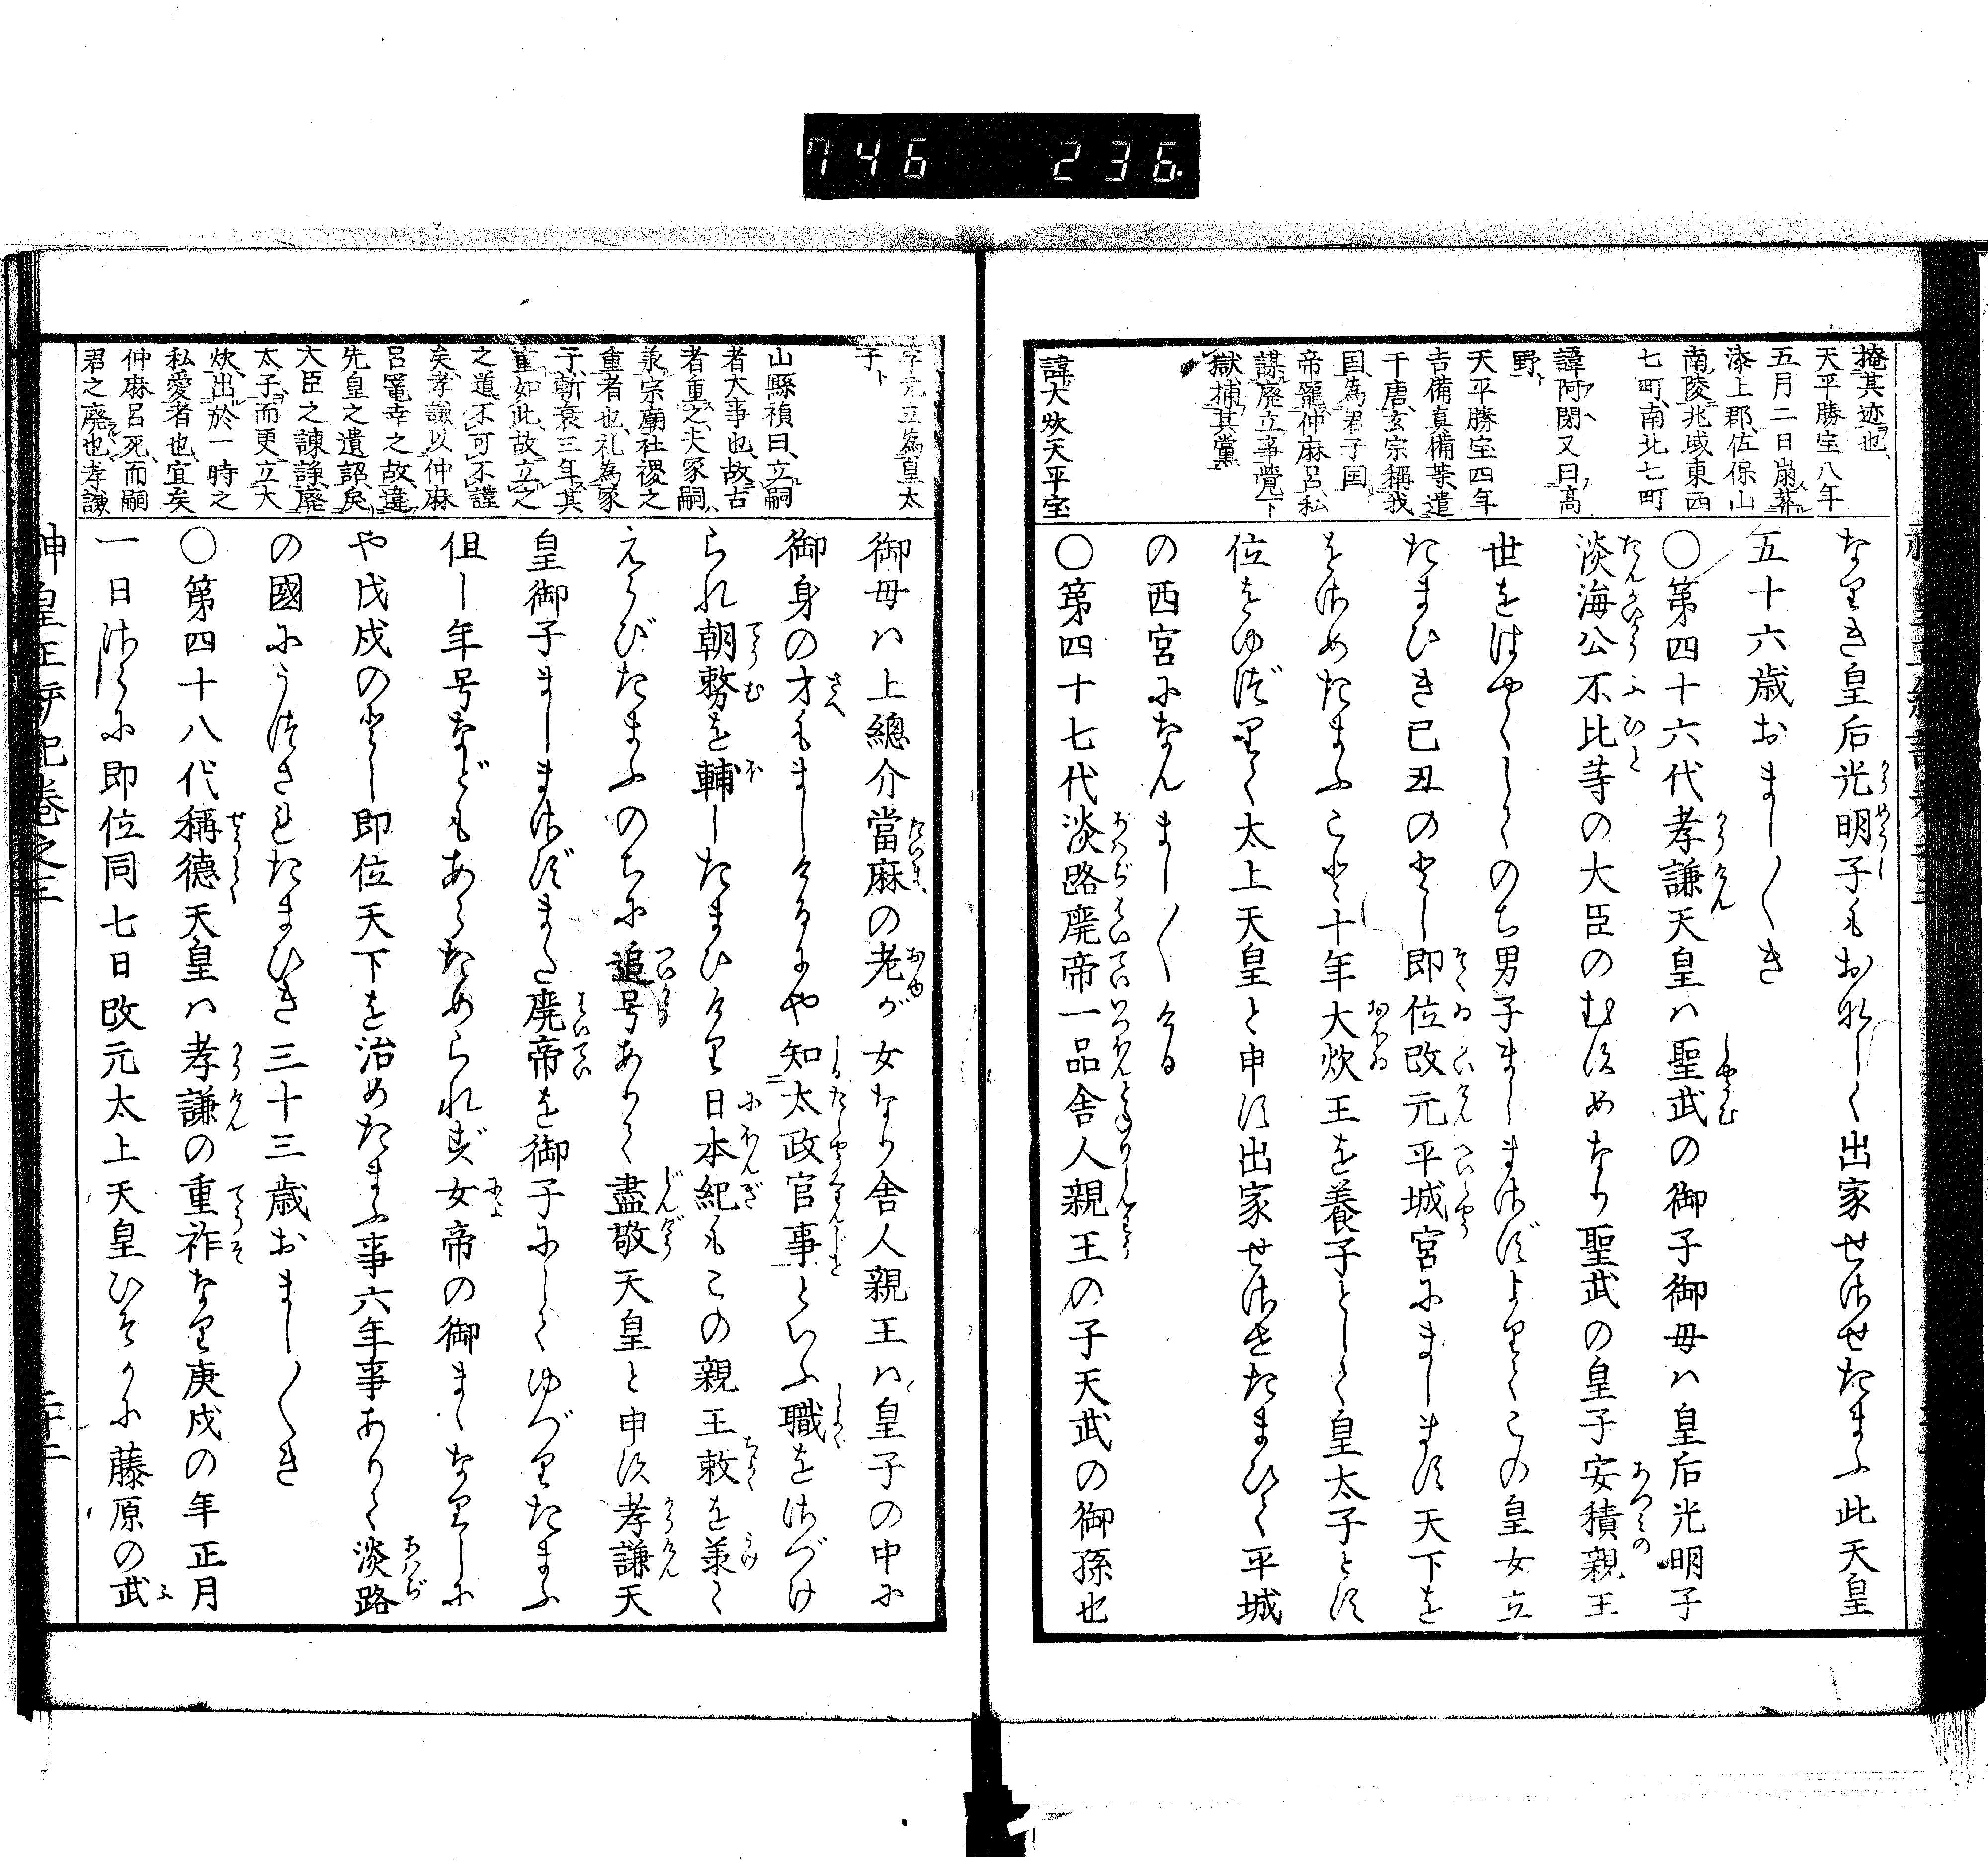 746 236.
掩其迹也、
天平勝宝八年
五月二日崩葬
漆上郡、佐保山
南陵兆域東西
七町、南北七町
諱阿閉又曰髙
野
天平勝宝四年
吉備真備等遣
于唐、玄宗稱我
国為君子国
帝寵仲麻呂、私
謀廃立事覺下
獄捕其黨
諱大炊天平宝
なりき皇后光明子もおなしく出家せさせたまふ此天皇
五十六歳おまし〱き
〇第四十六代孝謙天皇ハ聖武の御子御母ハ皇后光明子
淡海公不比等の大臣のむすめなり聖武の皇子安積親王
世をはやくしてのち男子ましまさずよりてこの皇女立
たまひき已丑のとし即位改元平城宮にまします天下を
をさめたまふこと十年大炊王を養子として皇太子とす
位をゆずりて太上天皇と申す出家せさせたまひて平城
の西宮になんまし〱ける
〇第四十七代淡路廃帝一品舎人親王の子天武の御孫也
字元立為皇太
子
山縣禎曰、立嗣
者大事也、故古
者重之、夫冢嗣
承宗廟社稷之
重者也、礼為冢
子、斬衰三年、其
重如此、故立之
之道、不可不謹
矣、孝謙以仲麻
呂寵幸之故、違
先皇之遺詔、戾
大臣之諫諍、廃
太子而更立大
炊、出於一時之
私愛者也、宜矣
仲麻呂死、而嗣
君之廃也、孝謙
御母ハ上總介當麻の老が女なり舎人親王ハ皇子の中に
御身の才もましけるにや知太政官事といふ職をさづけ
られ朝務を輔したまひけり日本紀もこの親王敕を承て
えらびたまふのちに追号ありて盡敬天皇と申す孝謙天
皇御子ましまさずまた廃帝を御子にしてゆづりたまふ
但し年号などもあらためられず女帝の御まゝなりしに
や戊戌のとし即位天下を治めたまふ事六年事ありて淡路
の國にうつされたまひき三十三歳おまし〱き
〇第四十八代稱徳天皇ハ孝謙の重祚なり庚戌の年正月
一日さらに即位同七日改元太上天皇ひそかに藤原の武
神皇正統記巻之三